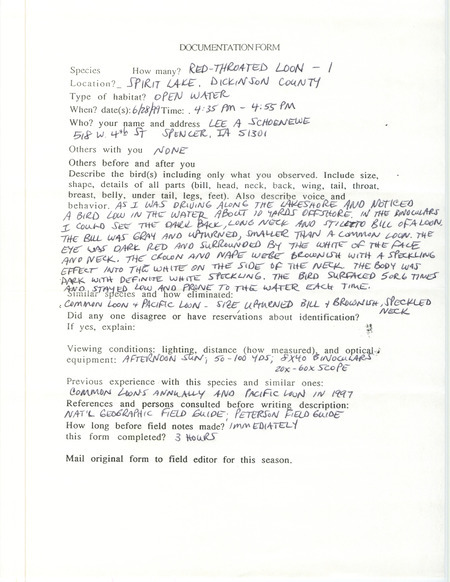 DOCUMENTATION FORM
Species How many? RED-THROATED LOON - 1
Location? SPIRIT LAKE, DICKINSON COUNTY
Type of habitat? OPEN WATER
When? date(s): Time: 4:35 PM - 4:55 PM
Who? your name and address LEE A SCHOENEWE
518 W. 4th ST SPENCER, IA 51301
Others with you NONE
Others before and after you
Describe the bird(s) including only what you observed. Include size,
shape, details of all parts (bill, head, neck, back, wing, tail, throat,
breast, belly, under tail, legs, feet). Also describe voice and
behavior. AS I WAS DRIVING ALONG THE LAKESHORE AND NOTICED
A BIRD LOW IN THE WATER ABOUT 10 YARDS OFFSHORE. IN THE BINOCULARS
I COULD SEE THE DARK BACK, LONG NECK AND STILETTO BILL OF A LOON.
THE BILL WAS GRAY AND UPTURNED, SMALLER THAN A COMMON LOON. THE
EYE WAS DARK RED AND SURROUNDED BY THE WHITE OF THE FACE
AND NECK. THE CROWN AND NAPE WERE BROWNISH WITH A SPECKLING
EFFECT INTO THE WHITE ON THE SIDE OF THE NECK. THE BODY WAS
DARK WITH DEFINITE WHITE SPECKLING. THE BIRD SURFACED 5 OR 6 TIMES
AND STAYED LOW AND PRONE TO THE WATER EACH TIME.
Similar species and how eliminated:
COMMON LOON + PACIFIC LOON - SIZE UPTURNED BILL + BROWNISH, SPECKLED
NECK
Did any one disagree or have reservations about identification?
If yes, explain:
Viewing conditions: lighting, distance (how measured), and optical
equipment: AFTERNOON SUN; 50-100 YDS; 8X40 BINOCULARS
20X-60X SCOPE
Previous experience with this species and similar ones:
COMMON LOONS ANNUALLY AND PACIFIC LOON IN 1997
References and persons consulted before writing description:
NAT'L GEOGRAPHIC FIELD GUIDE; PETERSON FIELD GUIDE
How long before field notes made? IMMEDIATELY
this form completed? 3 HOURS
Mail original form to field editor for this season.